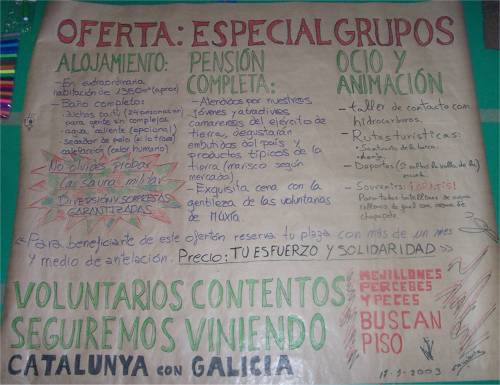 OFERTA: ESPECIAL GRUPOS
ALOJAMIENTO:
- En extraordinaria
habitación de 1350 m² (aprox)
- Baño completo:
duchas parti (24 personas max)
para gente sin complejos
agua caliente (opcional)
secador de pelo (a la traca)
calefacción (calor humano)
No olvides probar
la sauna militar
DIVERSIÓN Y SORPRESAS
GARANTIZADAS
PENSIÓN
COMPLETA:
- Atendidos por nuestros
jóvenes y atractivos
camareros del ejército de
tierra, degustarán
embutidos del país y
productos típicos de la
tierra (marisco según
mercado)
- Exquisita cena con la
gentileza de las voluntarias
de MUXÍA
OCIO Y
ANIMACIÓN
- taller de contacto con
hidrocarburos.
- Rutas turísticas:
- Santuario de la barca
- Deportes
- Souvenirs: ¡GRATIS!
«Para beneficiarte de este ofertón reserva tu plaza con más de un mes
y medio de antelación. Precio: TU ESFUERZO Y SOLIDARIDAD»
VOLUNTARIOS CONTENTOS
SEGUIREMOS VINIENDO
CATALUNYA con GALICIA
MEJILLONES
PERCEBES
Y PECES
BUSCAN
PISO
2003